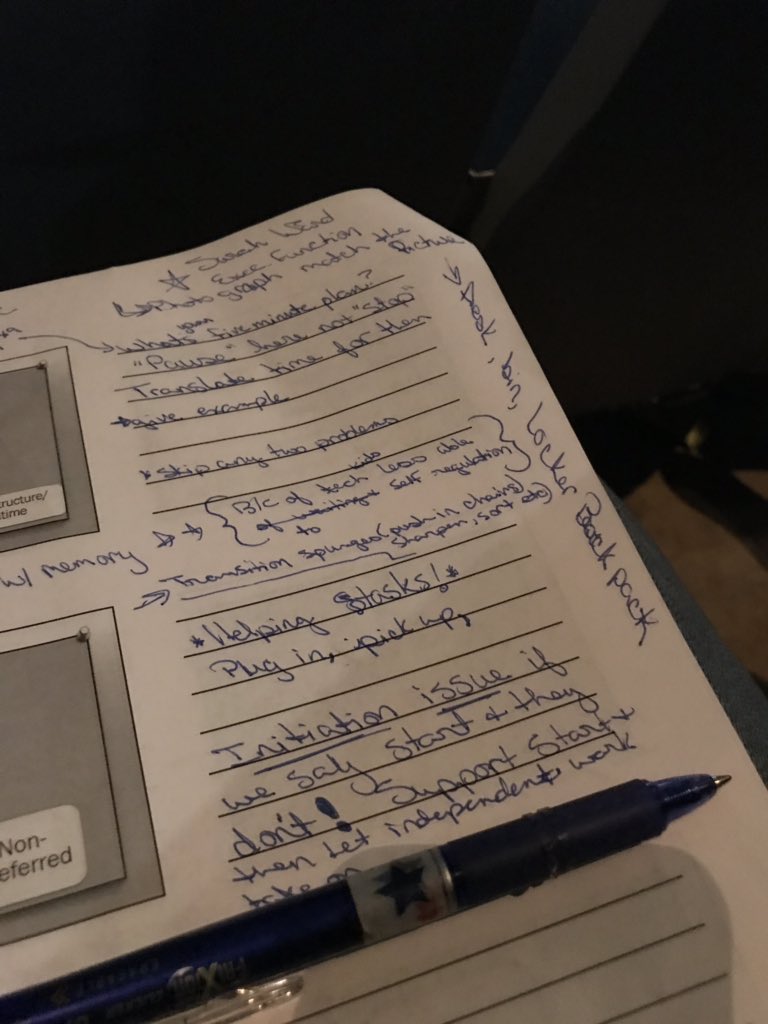 ☆ Sarah Ward
Exec Function
↳ Photograph match the Picture
→ desk, bin, locker Backpack
→ What's your five minute plan?
"Pause" here not "Stop"
Translate time for them
*give example
*Skip any two problems
B/C of tech less able
kids
to self regulation
w/ memory
→ Transition (push in chairs,
sharpen, sort etc)
*Helping tasks!*
Plug in, pick up,
Initiation issue if
we say start & they
don't! Support Start +
then let independent work
take
ructure/
time
Non-
eferred
FRIXION